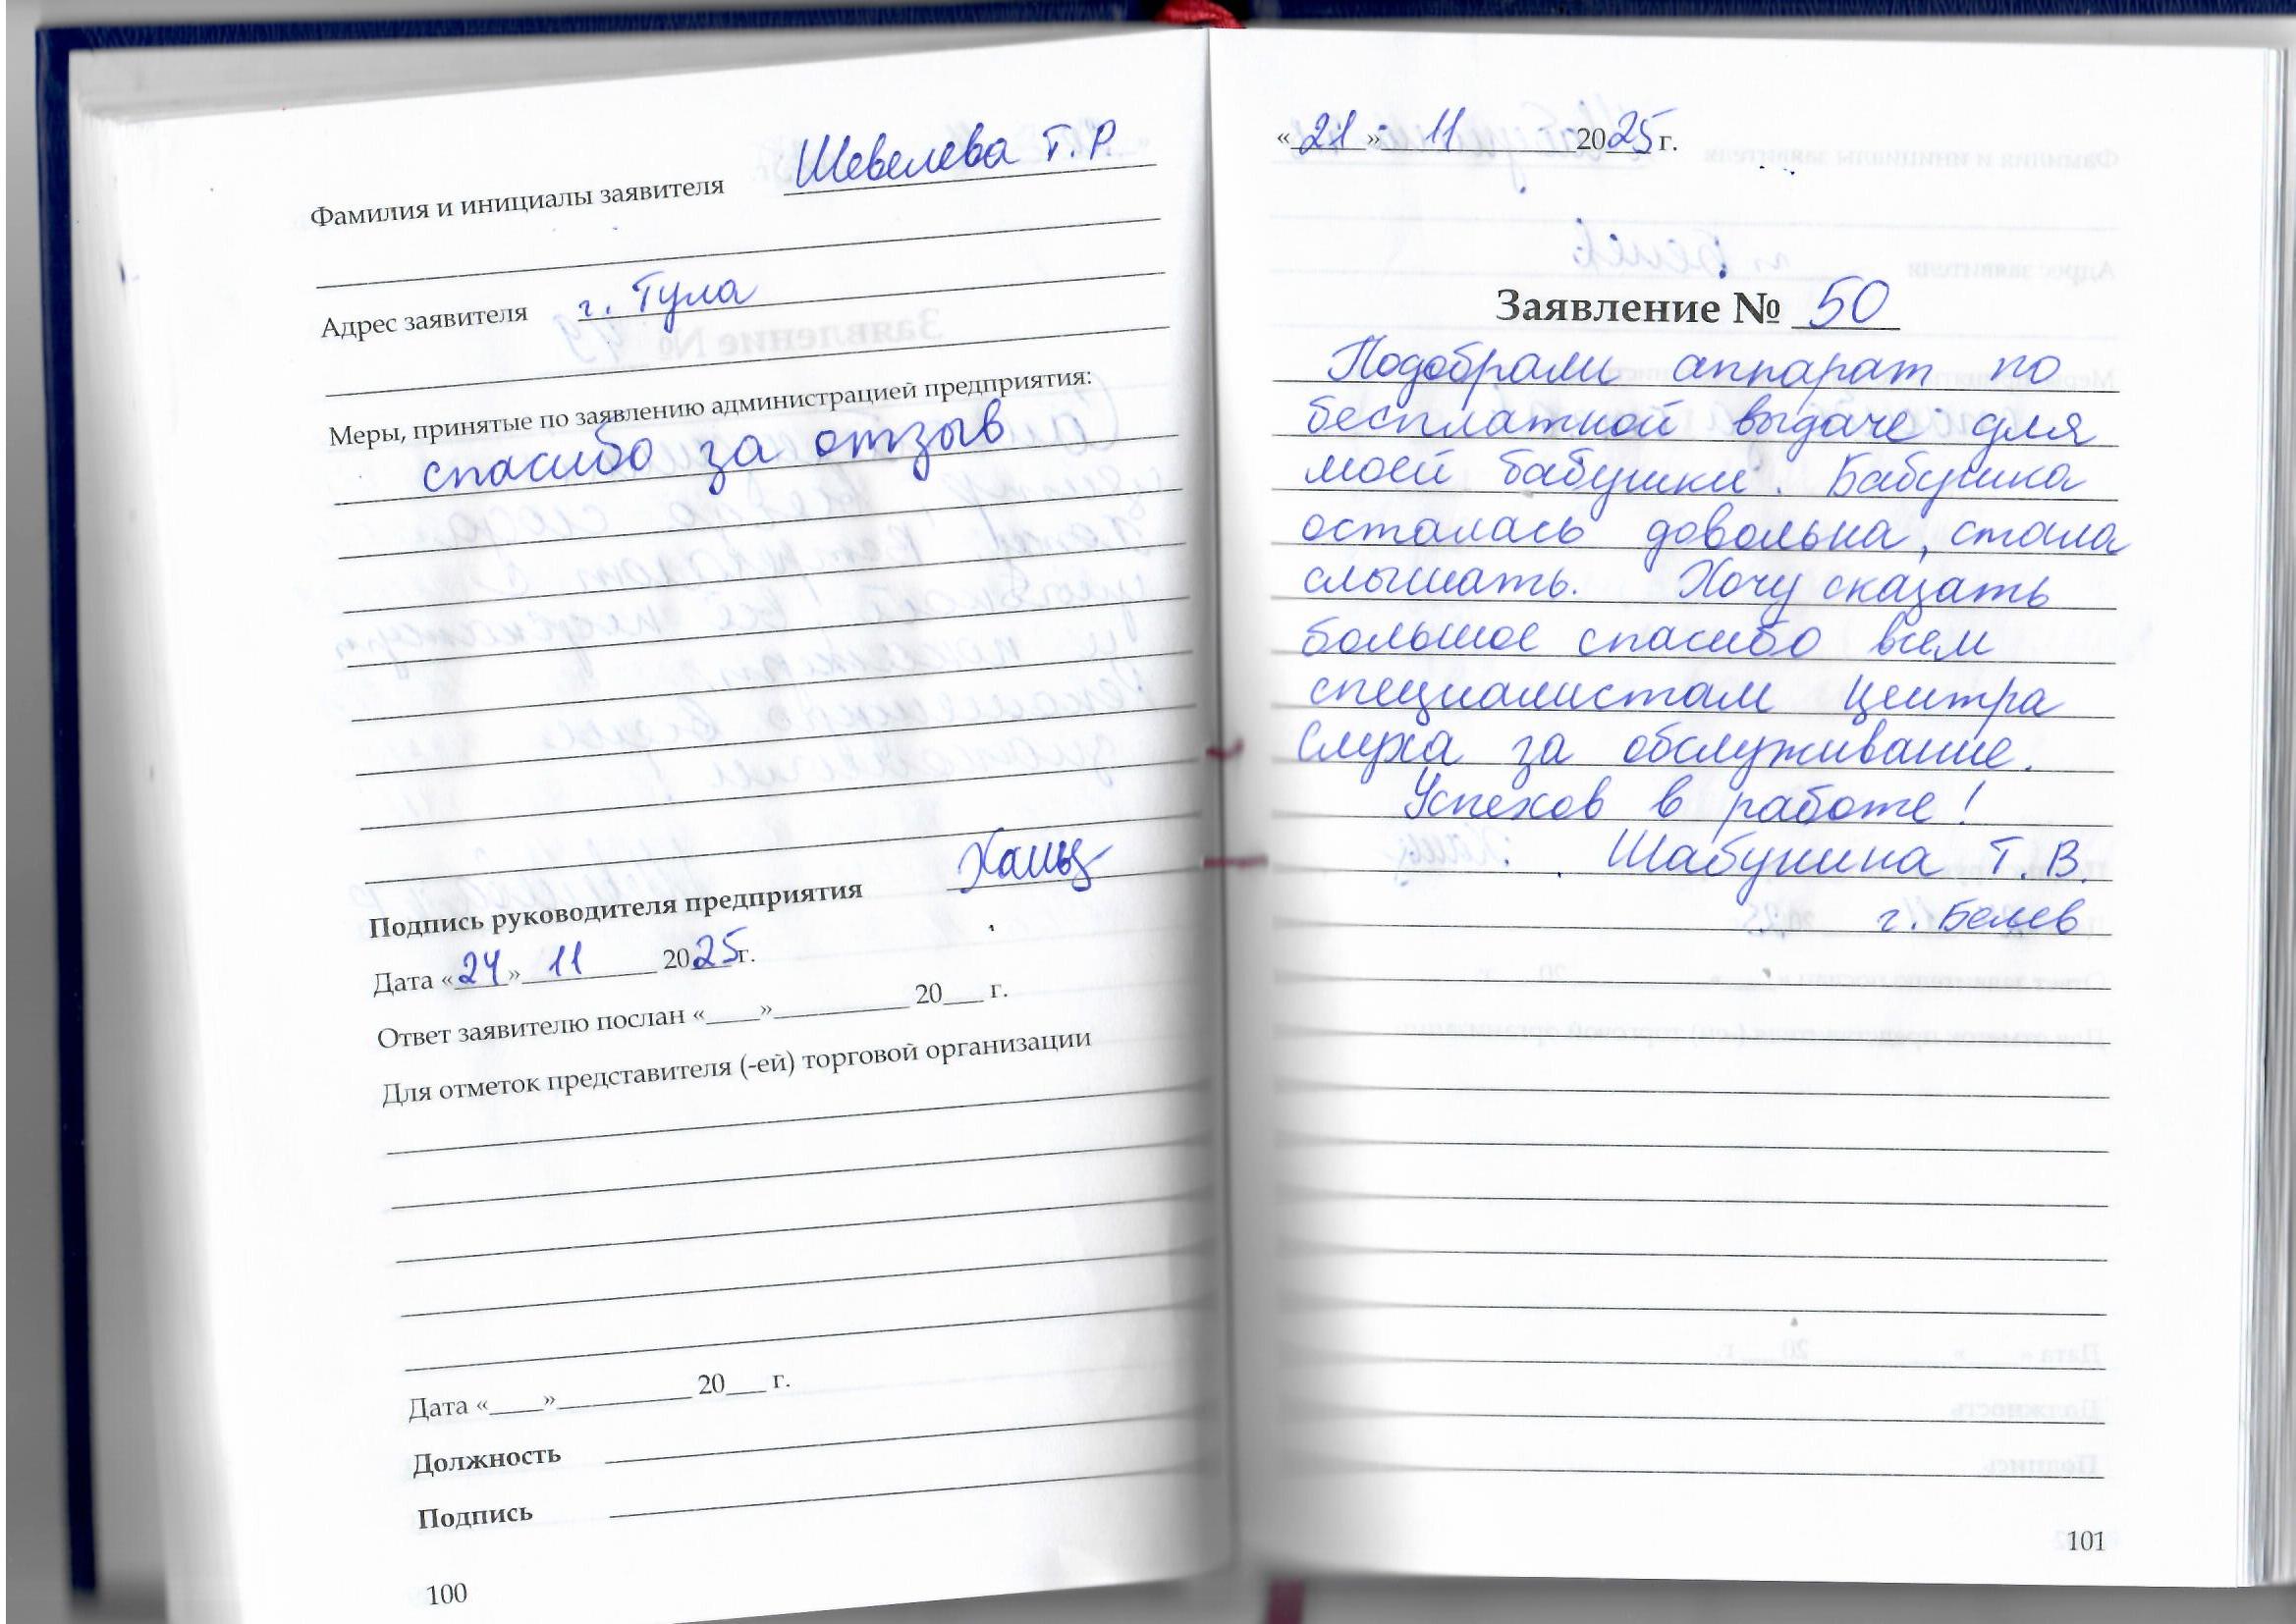 Фамилия и инициалы заявителя Шевелева Т.Р.
Адрес заявителя г. Тула
Меры, принятые по заявлению администрацией предприятия:
спасибо за отзыв
Подпись руководителя предприятия
Дата «24» 11 2025г.
Ответ заявителю послан «____»__________ 20___ г.
Для отметок представителя (-ей) торговой организации
Дата «____»__________ 20___ г.
Должность
Подпись
100
«21» 11 2025 г.
Заявление № 50
Подобрали аппарат по
бесплатной выдаче для
моей бабушки. Бабушка
осталась довольна, стала
слышать. Хочу сказать
большое спасибо всем
специалистам Центра
Слуха за обслуживание.
Успехов в работе!
Шабунина Т.В.
г. Белев
101